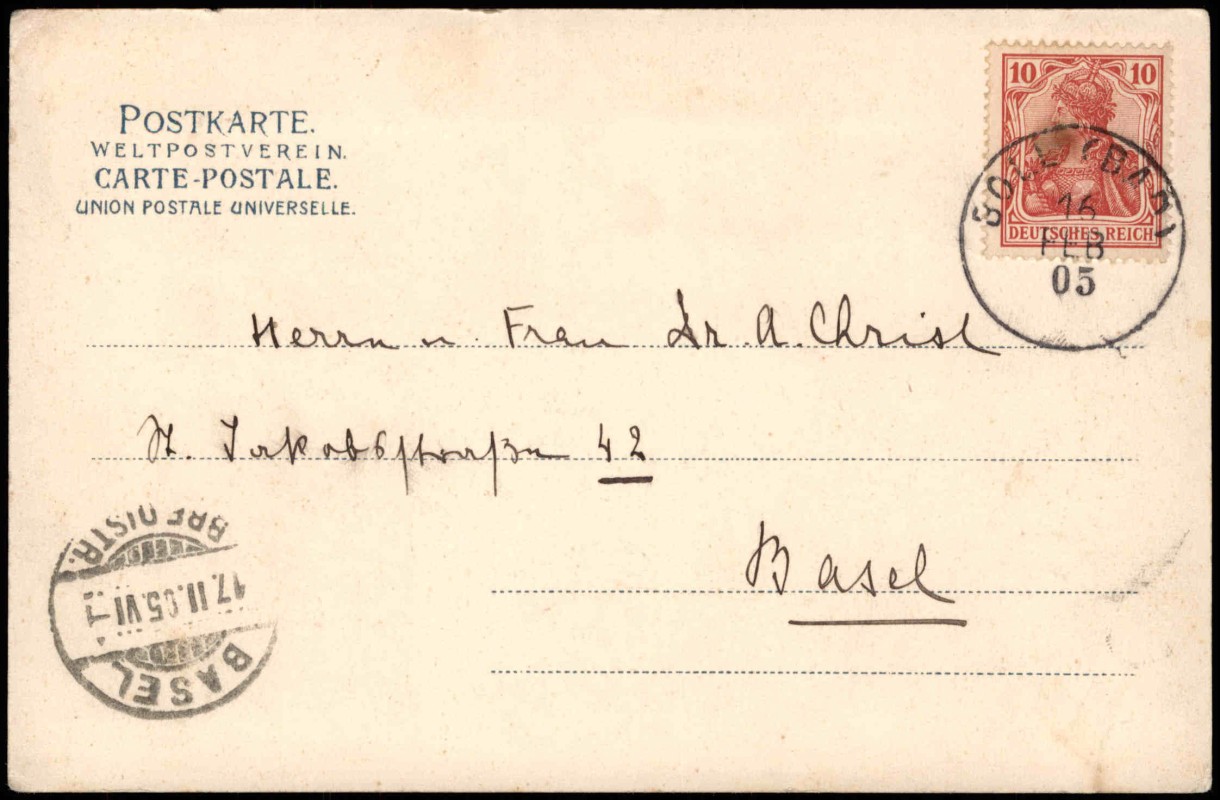 POSTKARTE.
WELTPOSTVEREIN.
CARTE-POSTALE.
UNION POSTALE UNIVERSELLE.
10 10
DEUTSCHES REICH
16
FEB
05
Herrn u. Frau Dr. A. Christ
St. Jakobsstraße 42
Basel
BASEL
17.II.05.VI
BRFDISTR.